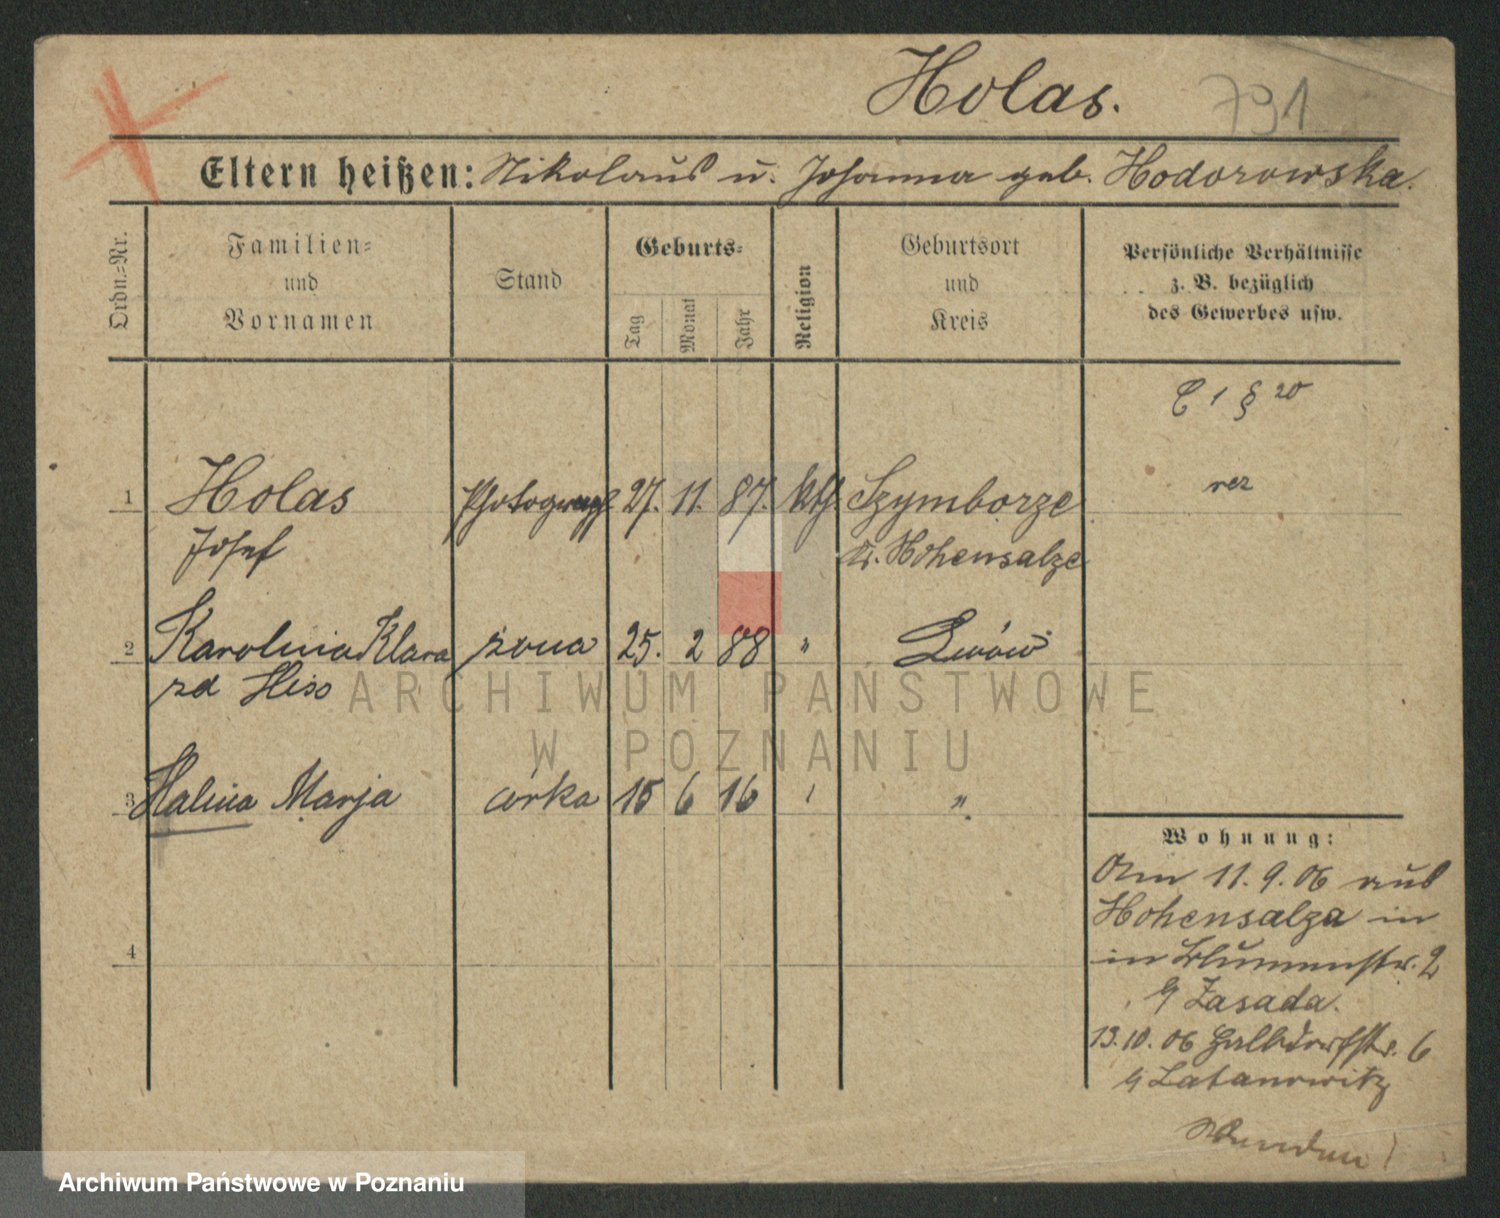 Holas.
791
Eltern heißen: Nikolaus u. Johanna geb. Hodorowska.
Ordn.=Nr.
Familien=
und
Vornamen
Stand
Geburts=
Tag
Monat
Jahr
Religion
Geburtsort
und
Kreis
Persönliche Verhältnisse
z. B. bezüglich
des Gewerbes usw.
C 1 § 20
rez
1 Holas Photograph 27. 11. 87. kth. Szymborze
Josef Kr. Hohensalza
2 Karolina Klara żona 25. 2 88 " Lwów
zd Hiss
3 Halina Marja córka 15 6 16 " "
4
Wohnung:
Am 11.9.06 aus
Hohensalza in
in Blumenstr. 2
Zasada.
13.10.06 Halbdorfstr. 6
Latanowitz
ARCHIWUM PAŃSTWOWE
W POZNANIU
Archiwum Państwowe w Poznaniu